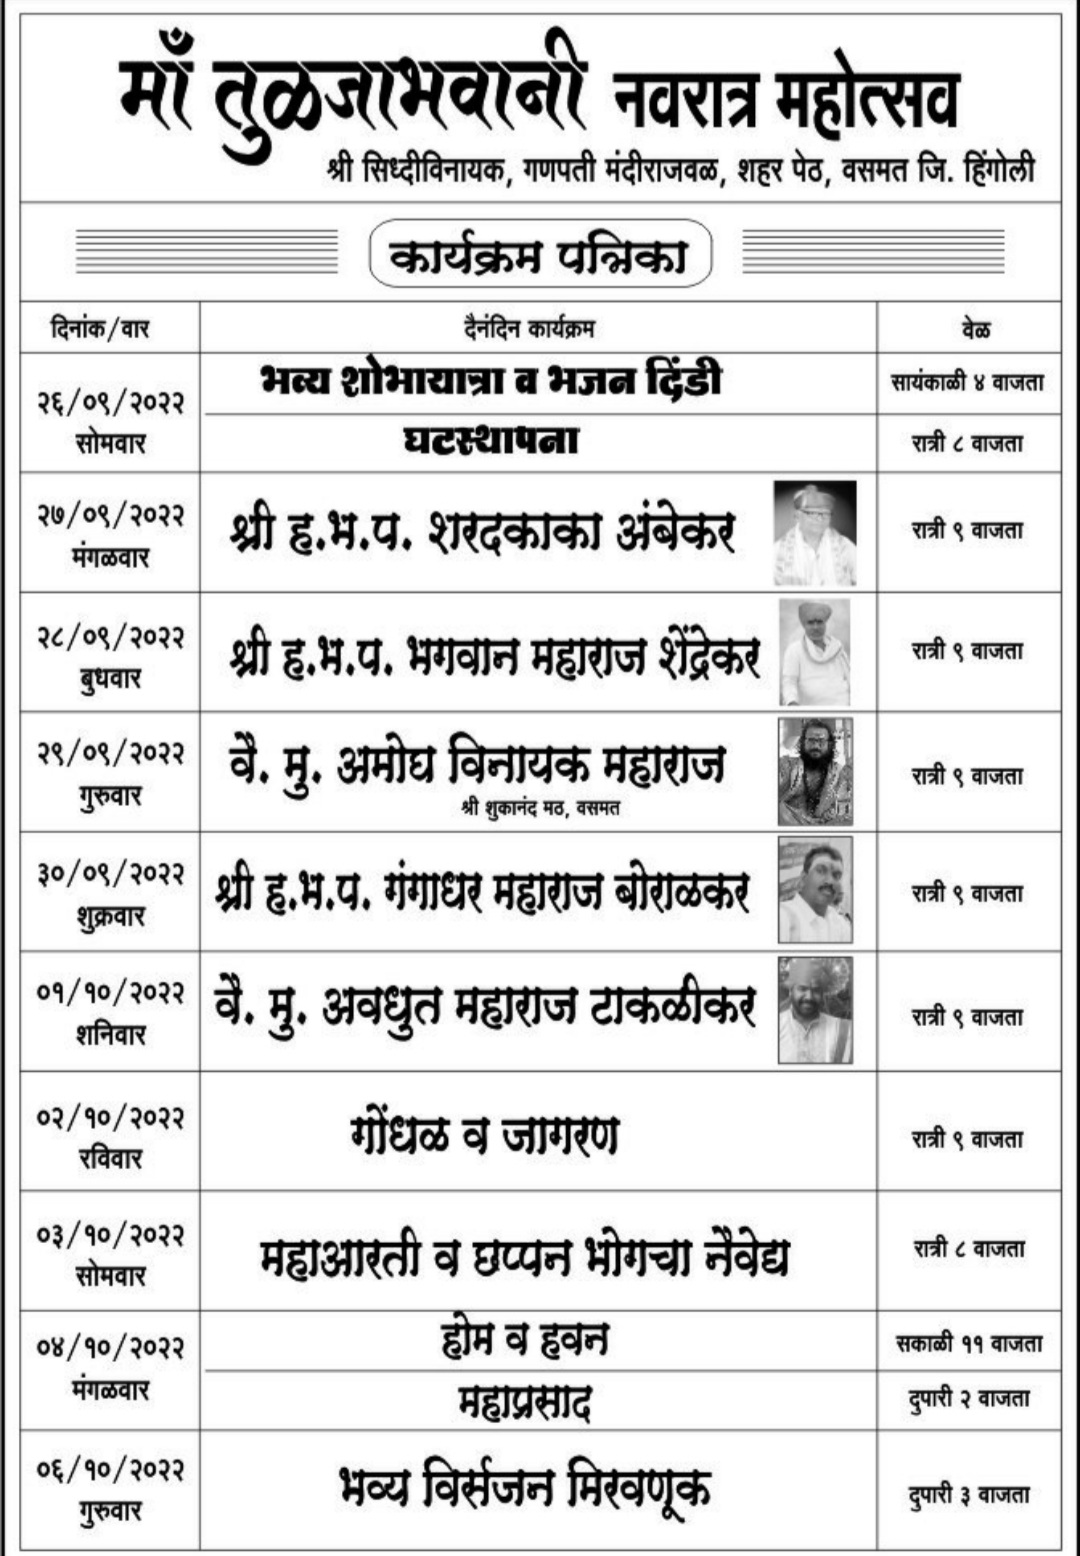 माँ तुळजाभवानी नवरात्र महोत्सव
श्री सिध्दीविनायक, गणपती मंदीराजवळ, शहर पेठ, वसमत जि. हिंगोली
कार्यक्रम पत्रिका
दिनांक/वार दैनंदिन कार्यक्रम वेळ
२६/०९/२०२२
सोमवार
भव्य शोभायात्रा व भजन दिंडी सायंकाळी ४ वाजता
घटस्थापना रात्री ८ वाजता
२७/०९/२०२२
मंगळवार
श्री ह.भ.प. शरदकाका अंबेकर रात्री ९ वाजता
२८/०९/२०२२
बुधवार
श्री ह.भ.प. भगवान महाराज शेंद्रेकर रात्री ९ वाजता
२९/०९/२०२२
गुरुवार
वै. मु. अमोघ विनायक महाराज रात्री ९ वाजता
श्री शुकानंद मठ, वसमत
३०/०९/२०२२
शुक्रवार
श्री ह.भ.प. गंगाधर महाराज बोराळकर रात्री ९ वाजता
०१/१०/२०२२
शनिवार
वै. मु. अवधुत महाराज टाकळीकर रात्री ९ वाजता
०२/१०/२०२२
रविवार
गोंधळ व जागरण रात्री ९ वाजता
०३/१०/२०२२
सोमवार
महाआरती व छप्पन भोगचा नैवेद्य रात्री ८ वाजता
०४/१०/२०२२
मंगळवार
होम व हवन सकाळी ११ वाजता
महाप्रसाद दुपारी २ वाजता
०६/१०/२०२२
गुरुवार
भव्य विर्सजन मिरवणूक दुपारी ३ वाजता